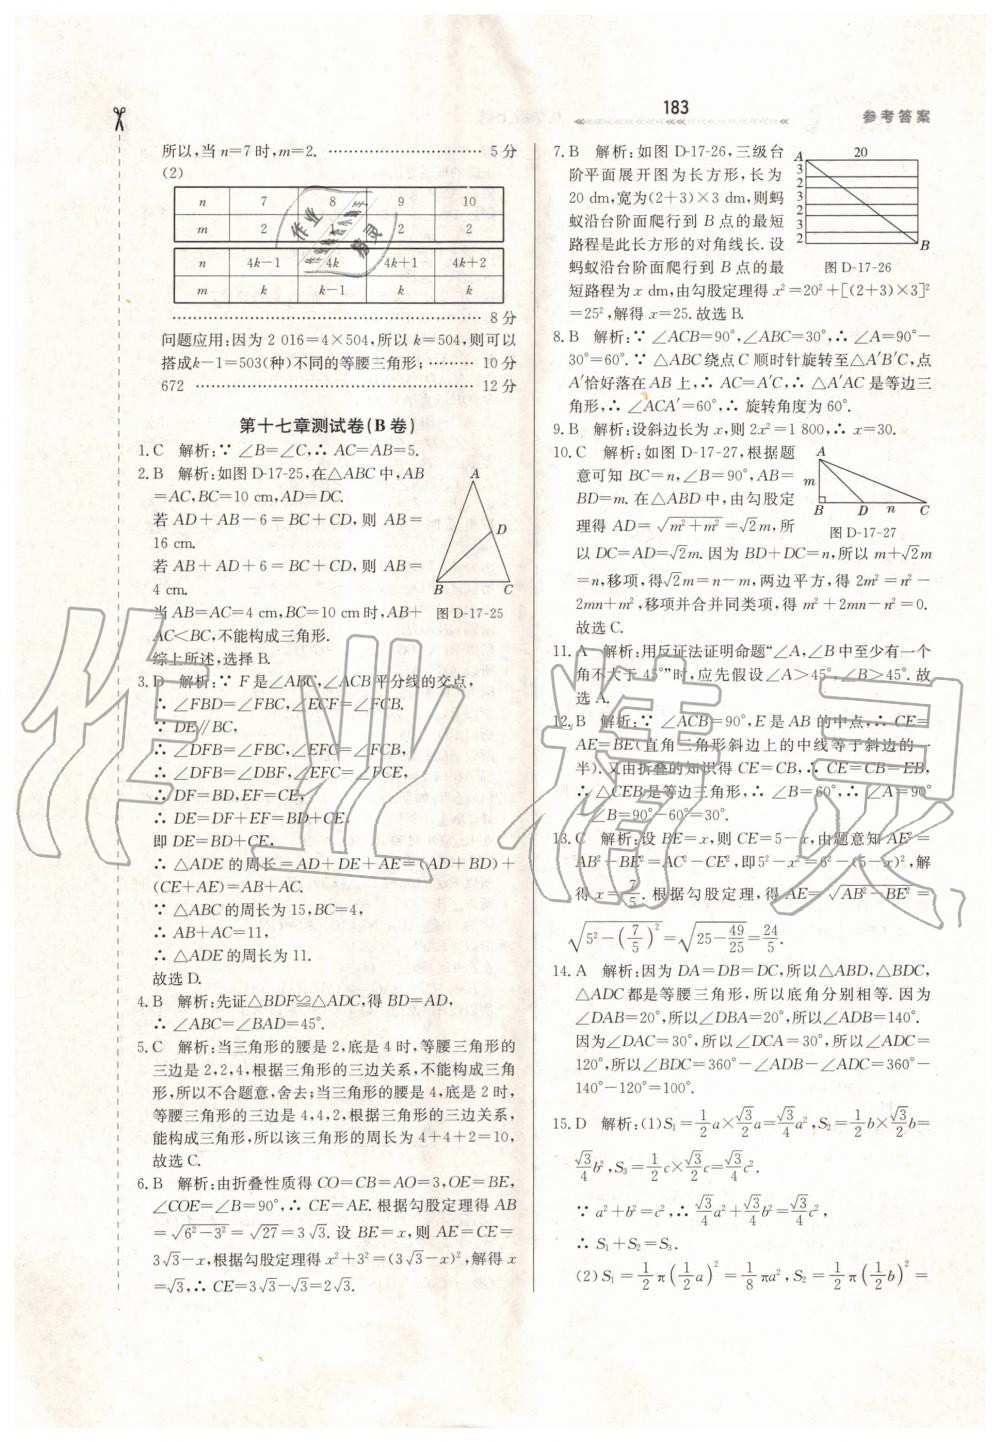 183
参考答案
所以,当 n=7 时,m=2. ································ 5 分
(2)
n 7 8 9 10
m 2 1 2 2
n 4k−1 4k 4k+1 4k+2
m k k−1 k k
································ 8 分
问题应用:因为 2 016=4×504,所以 k=504,则可以
搭成k−1=503(种)不同的等腰三角形;········· 10 分
672 ································ 12 分
第十七章测试卷(B 卷)
1.C 解析:∵ ∠B=∠C,∴ AC=AB=5.
2.B 解析:如图 D-17-25,在△ABC 中,AB
=AC,BC=10 cm,AD=DC.
若 AD+AB−6=BC+CD,则 AB=
16 cm.
若 AB+AD+6=BC+CD,则 AB=
4 cm.
当 AB=AC=4 cm,BC=10 cm时,AB+
AC<BC,不能构成三角形.
综上所述,选择 B.
A
D
B C
图 D-17-25
3.D 解析:∵ F 是∠ABC,∠ACB平分线的交点,
∴ ∠FBD=∠FBC,∠ECF=∠FCB.
∵ DE∥BC,
∴ ∠DFB=∠FBC,∠EFC=∠FCB,
∴ ∠DFB=∠DBF,∠EFC=∠FCE,
∴ DF=BD,EF=CE,
∴ DE=DF+EF=BD+CE,
即 DE=BD+CE.
∴ △ADE 的周长=AD+DE+AE=(AD+BD)+
(CE+AE)=AB+AC.
∵ △ABC 的周长为 15,BC=4,
∴ AB+AC=11,
∴ △ADE 的周长为 11.
故选 D.
4.B 解析:先证△BDF≌△ADC,得 BD=AD,
∴ ∠ABC=∠BAD=45°.
5.C 解析:当三角形的腰是 2,底是 4 时,等腰三角形的
三边是 2,2,4,根据三角形的三边关系,不能构成三角
形,所以不合题意,舍去;当三角形的腰是 4,底是 2 时,
等腰三角形的三边是 4,4,2,根据三角形的三边关系,
能构成三角形,所以该三角形的周长为 4+4+2=10,
故选 C.
6.B 解析:由折叠性质得 CO=CB=AO=3,OE=BE,
∠COE=∠B=90°,∴ CE=AE. 根据勾股定理得 AB
=√(6²−3²)=√27=3√3. 设 BE=x,则 AE=CE=
3√3−x,根据勾股定理得 x²+3²=(3√3−x)²,解得 x
=√3,∴ CE=3√3−√3=2√3.
7.B 解析:如图 D-17-26,三级台
阶平面展开图为长方形,长为
20 dm,宽为(2+3)×3 dm,则蚂
蚁沿台阶面爬行到 B 点的最短
路程是此长方形的对角线长. 设
蚂蚁沿台阶面爬行到 B 点的最
短路程为 x dm,由勾股定理得 x²=20²+[(2+3)×3]²
=25²,解得 x=25.故选 B.
A 20
3
2
3
2
3
2
B
图 D-17-26
8.B 解析:∵ ∠ACB=90°,∠ABC=30°,∴ ∠A=90°−
30°=60°. ∵ △ABC 绕点 C 顺时针旋转至△A′B′C,点
A′恰好落在 AB 上,∴ AC=A′C,∴ △A′AC 是等边三
角形,∴ ∠ACA′=60°,∴ 旋转角度为 60°.
9.B 解析:设斜边长为 x,则 2x²=1 800,∴ x=30.
10.C 解析:如图 D-17-27,根据题
意可知 BC=n,∠B=90°,AB=
BD=m. 在△ABD 中,由勾股定
理得 AD=√(m²+m²)=√2m,所
以 DC=AD=√2m. 因为 BD+DC=n,所以 m+√2m
=n,移项,得√2m=n−m,两边平方,得 2m²=n²−
2mn+m²,移项并合并同类项,得 m²+2mn−n²=0.
故选 C.
A
m
B D n C
图 D-17-27
11.A 解析:用反证法证明命题“∠A,∠B 中至少有一个
角不大于 45°”时,应先假设∠A>45°,∠B>45°. 故
选 A.
12.B 解析:∵ ∠ACB=90°,E 是 AB 的中点,∴ CE=
AE=BE(直角三角形斜边上的中线等于斜边的一
半). 又由折叠的知识得 CE=CB,∴ CE=CB=EB,
∴ △CEB是等边三角形,∴ ∠B=60°,∴ ∠A=90°
−∠B=90°−60°=30°.
13.C 解析:设 BE=x,则 CE=5−x,由题意知 AE²=
AB²−BE²=AC²−CE²,即5²−x²=6²−(5−x)²,解
得 x=7/5. 根据勾股定理,得 AE=√(AB²−BE²)=
√(5²−(7/5)²)=√(25−49/25)=24/5.
14.A 解析:因为 DA=DB=DC,所以△ABD,△BDC,
△ADC 都是等腰三角形,所以底角分别相等. 因为
∠DAB=20°,所以∠DBA=20°,所以∠ADB=140°.
因为∠DAC=30°,所以∠DCA=30°,所以∠ADC=
120°,所以∠BDC=360°−∠ADB−∠ADC=360°−
140°−120°=100°.
15.D 解析:(1)S₁=1/2a×√3/2a=√3/4a²,S₂=1/2b×√3/2b=
√3/4b²,S₃=1/2c×√3/2c=√3/4c².
∵ a²+b²=c²,∴ √3/4a²+√3/4b²=√3/4c²,
∴ S₁+S₂=S₃.
(2)S₁=1/2π(1/2a)²=1/8πa²,S₂=1/2π(1/2b)²=
作业精灵